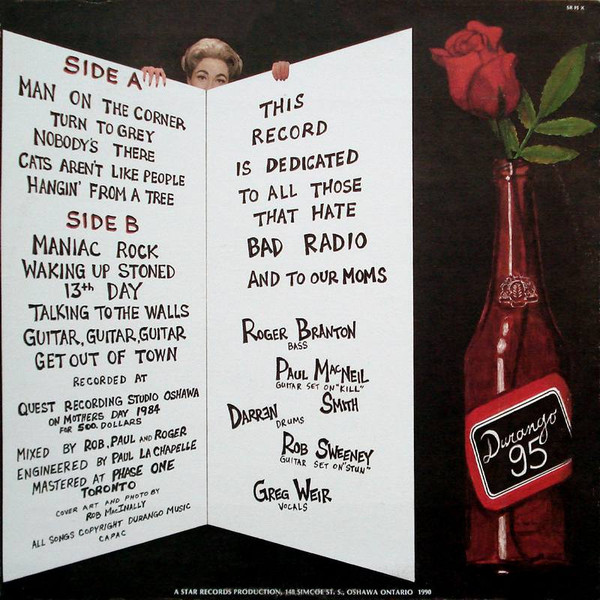 SR FS X
SIDE A
MAN ON THE CORNER
TURN TO GREY
NOBODY'S THERE
CATS AREN'T LIKE PEOPLE
HANGIN' FROM A TREE
SIDE B
MANIAC ROCK
WAKING UP STONED
13th DAY
TALKING TO THE WALLS
GUITAR, GUITAR, GUITAR
GET OUT OF TOWN
RECORDED AT
QUEST RECORDING STUDIO OSHAWA
ON MOTHERS DAY 1984
FOR 500. DOLLARS
MIXED BY ROB, PAUL AND ROGER
ENGINEERED BY PAUL LACHAPELLE
MASTERED AT PHASE ONE
TORONTO
COVER ART AND PHOTO BY
ROB MACINALLY
ALL SONGS COPYRIGHT DURANGO MUSIC
CAPAC
THIS
RECORD
IS DEDICATED
TO ALL THOSE
THAT HATE
BAD RADIO
AND TO OUR MOMS
ROGER BRANTON
BASS
PAUL MACNEIL
GUITAR SET ON "KILL"
DARREN SMITH
DRUMS
ROB SWEENEY
GUITAR SET ON "STUN"
GREG WEIR
VOCALS
Durango
95
A STAR RECORDS PRODUCTION, 148 SIMCOE ST. S., OSHAWA ONTARIO 1990